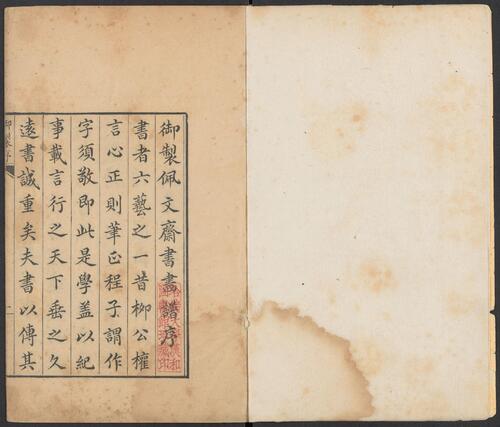 御製佩文齋書畫譜序
書者六藝之一昔柳公權
言心正則筆正程子謂作
字須敬即此是學蓋以紀
事載言行之天下垂之久
遠書誠重矣夫書以傳其